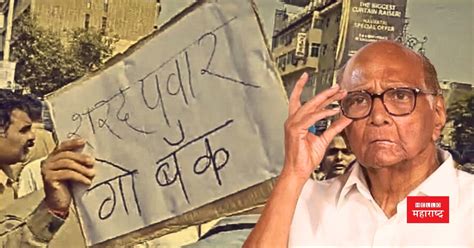 THE BIGGEST
CURTAIN RAISER!
NAVRATRI
SPECIAL OFFER
शरद पवार
गो बॅक
HELLO
महाराष्ट्र